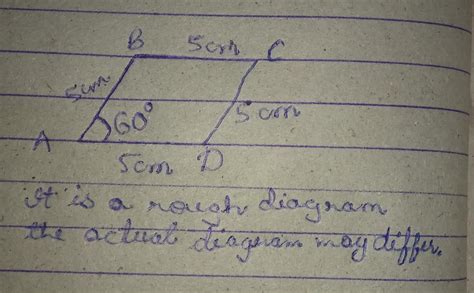 B 5cm C
5cm
60°
5cm
A
5cm D
It is a rough diagram
the actual diagram may differ.